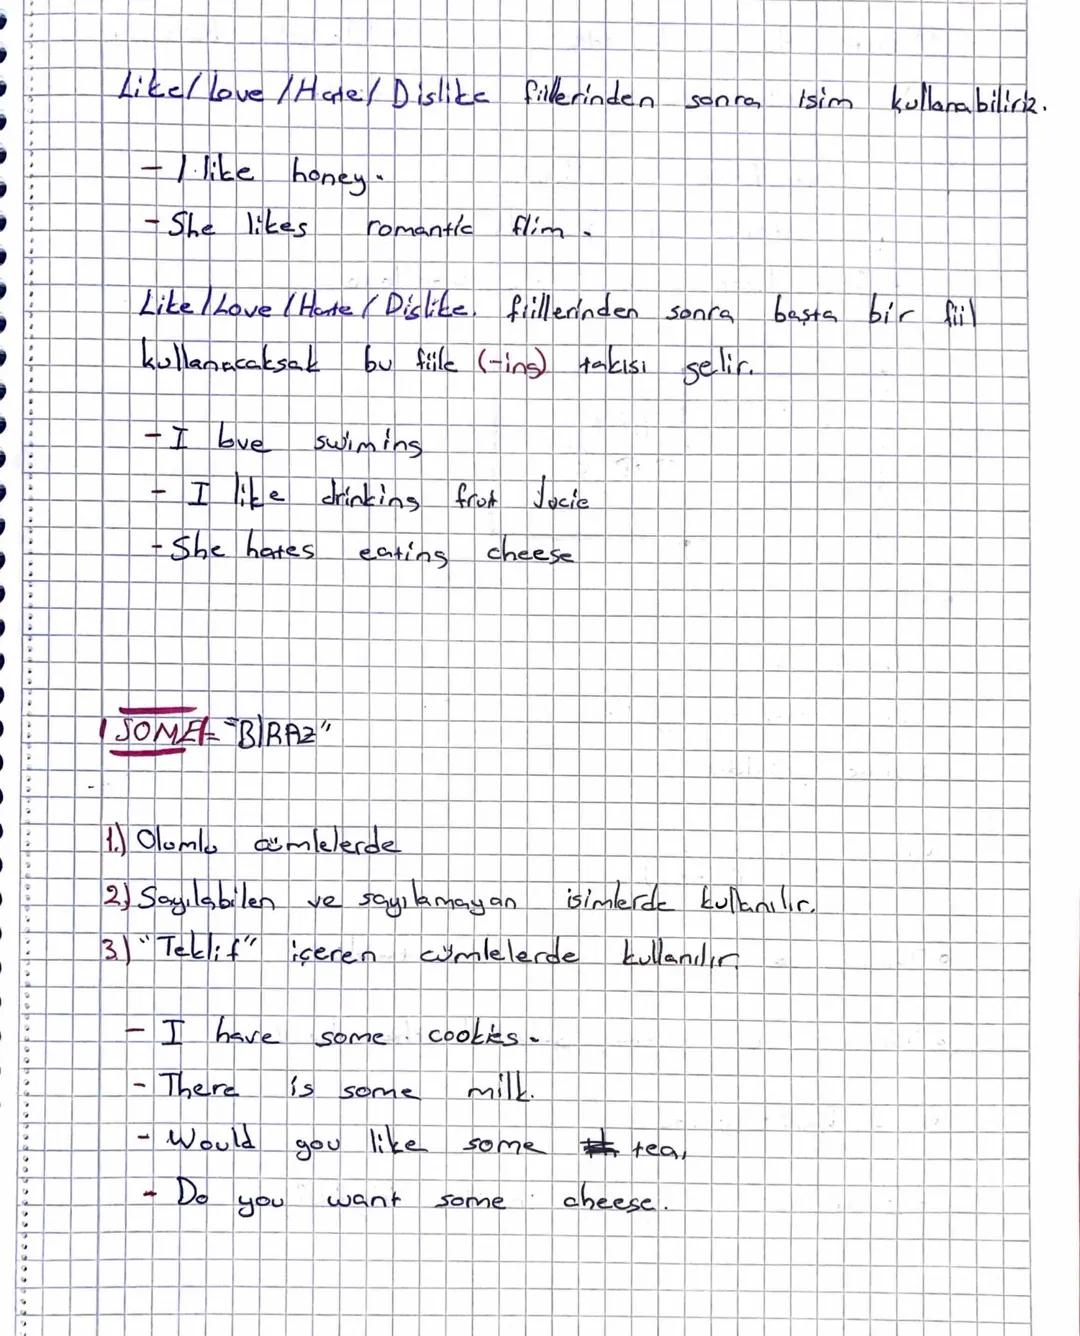 Like/Love/Hate/Dislike fiillerinden sonra isim kullanabiliriz.
- I like honey.
- She likes romantic flim.
Like/Love/Hate/Dislike. fiillerinden sonra başta bir fiil
kullanacaksak bu fiile (-ing) takısı gelir.
- I love swiming
- I like drinking frot Jocie
- She hates eating cheese
SOME = "BIRAZ"
1.) Olumlu cümlelerde
2) Sayılabilen ve sayılamayan isimlerde kullanılır.
3.) "Teklif" içeren cümlelerde kullanılır
- I have some cookies.
- There is some milk.
- Would you like some tea,
- Do you want some cheese.